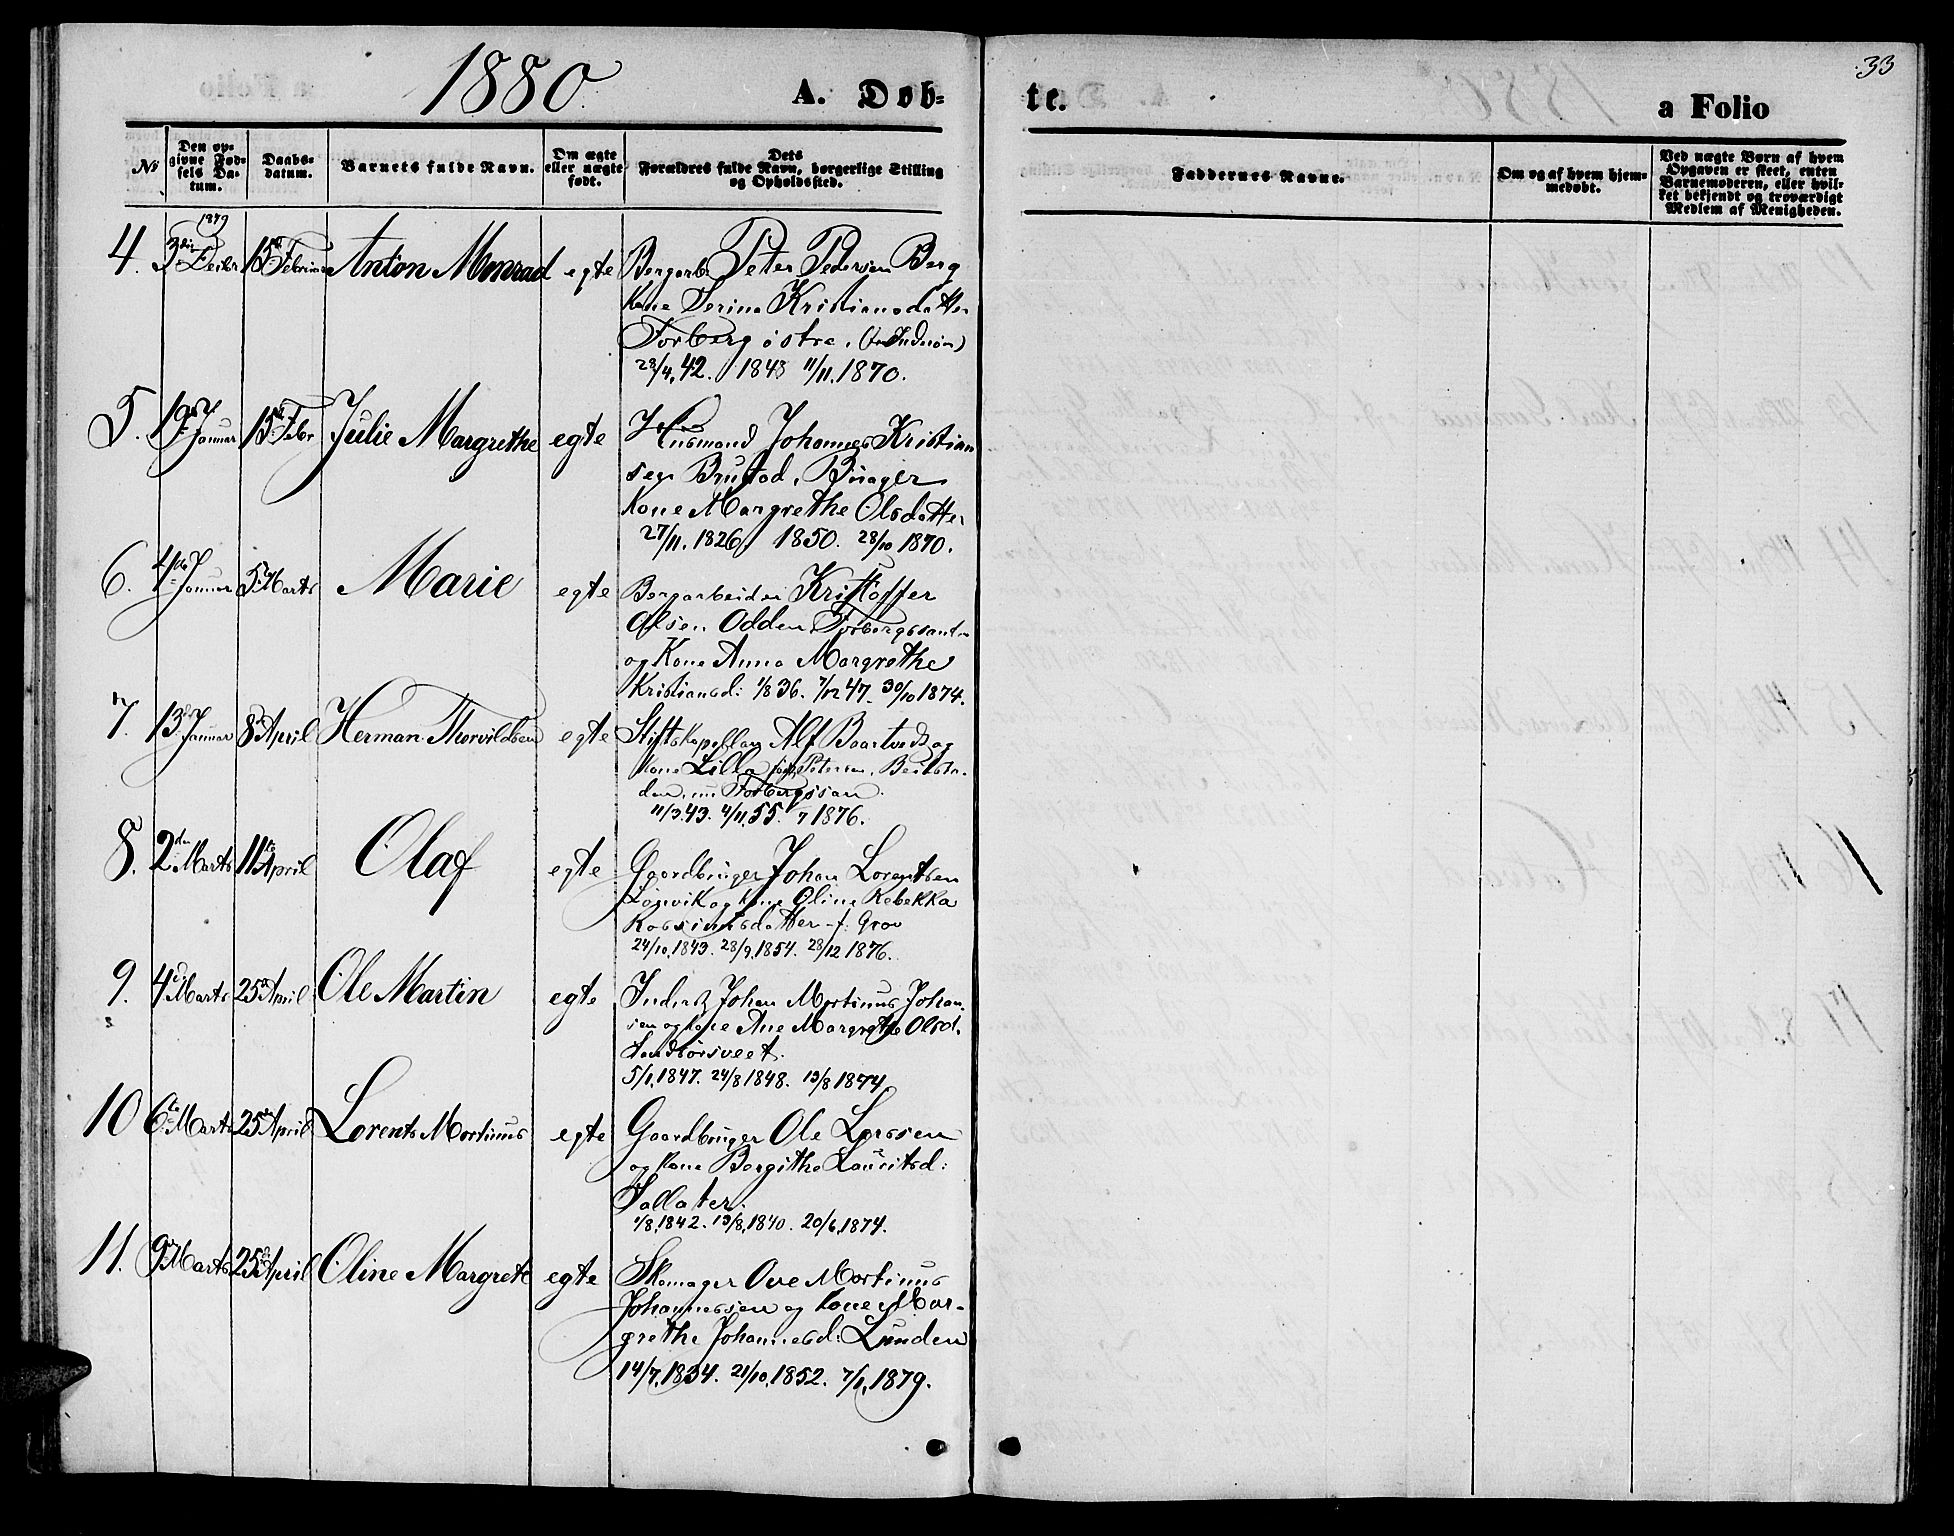 1880.
A. Døb=
te.
33
a Folio
No
Den op=
givne Fød=
sels Da=
tum.
Daabs=
datum.
Barnets fulde Navn.
Om ægte
eller uægte
født.
Dets
Forældres fulde Navn, borgerlige Stilling
og Opholdssted.
Faddernes Navne.
Om og af hvem hjem=
medøbt.
Ved uægte Børn af hvem
Opgaven er skeet, enten
Barnemoderen, eller hvil=
ket bekjendt og troværdigt
Medlem af Menigheden.
1879
4. 3die 15de Anton Monrad egte Bergarb. Peter Pedersen Berg
Kone Serina Kristiansdatter
Forberg østre.
28/4.42. 1848 11/11.1870.
5. 19de Januar 15de Febr Julie Margrethe egte Husmand Johannes Kristian
sen Brustad,
Kone Margrethe Olsdatter
27/11.1826 1850. 28/10 1870.
6. 4de Januar 5te Marts Marie egte Bergarbeider Kristoffer
Olsen Odden,
og Kone Anna Margrethe
Kristiansd: 1/8 36. 7/12 47. 30/10 1874.
7. 13de Januar 8de April Herman Thorvildsen egte Stiftskapellan Alf
Kone Lilla Petersen,
11/3.43. 4/11.55. 7 1876.
8. 2den Marts 11te April Olaf egte Gaardbruger Johan Lorentsen
Løsvik og Kone Oline Rebekka
Rassmusdatter f: Grov
24/10.1843. 28/9.1854. 28/12 1876.
9. 4de Marts 25de April Ole Martin egte Johan Martinus Johan=
sen og Kone Ane Margrethe Olsd.
5/1.1847. 24/8 1848. 13/8 1874.
10 6te Marts 25de April Lorents Martinus egte Gaardbruger Ole Larssen
og Kone Bergithe Lauritsd:
1/8.1842. 13/8.1840. 20/6.1874.
11. 9de Marts 25de April Oline Margrete egte Skomager Ove Martinus
Johannessen og Kone Mar=
grethe Johannesd: Lunden
14/7.1834. 21/10.1852. 7/1.1879.